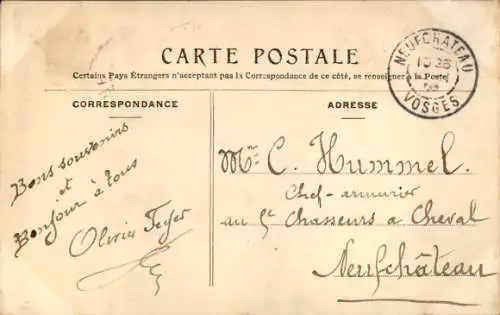 CARTE POSTALE
Certains Pays Étrangers n'acceptant pas la Correspondance de ce côté, se renseigner à la Poste
CORRESPONDANCE
ADRESSE
Bons souvenirs
et
Bonjour à tous
Olivier
Mr. C. Hummel.
Chef-armurier
au Chasseurs a Cheval
Neufchâteau
NEUFCHATEAU
VOSGES